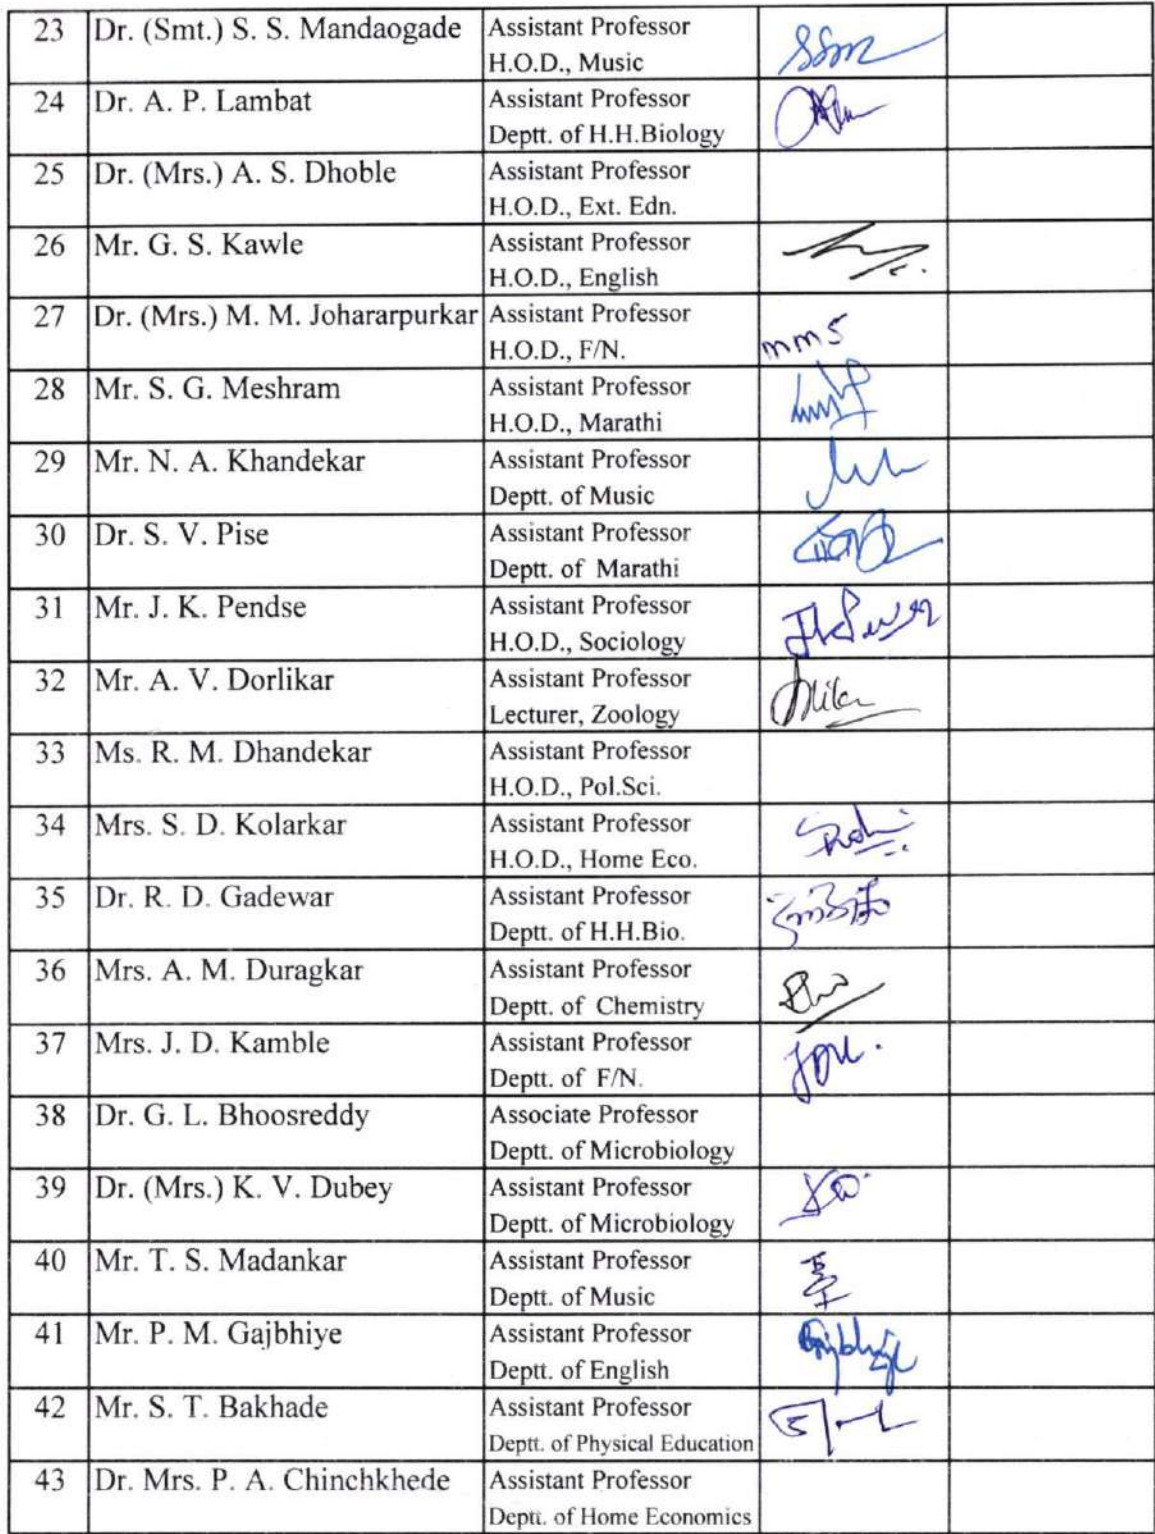 23 Dr. (Smt.) S. S. Mandaogade Assistant Professor
H.O.D., Music SSm
24 Dr. A. P. Lambat Assistant Professor
Deptt. of H.H.Biology
25 Dr. (Mrs.) A. S. Dhoble Assistant Professor
H.O.D., Ext. Edn.
26 Mr. G. S. Kawle Assistant Professor
H.O.D., English
27 Dr. (Mrs.) M. M. Johararpurkar Assistant Professor
H.O.D., F/N.
28 Mr. S. G. Meshram Assistant Professor
H.O.D., Marathi
29 Mr. N. A. Khandekar Assistant Professor
Deptt. of Music
30 Dr. S. V. Pise Assistant Professor
Deptt. of Marathi
31 Mr. J. K. Pendse Assistant Professor
H.O.D., Sociology
32 Mr. A. V. Dorlikar Assistant Professor
Lecturer, Zoology
33 Ms. R. M. Dhandekar Assistant Professor
H.O.D., Pol.Sci.
34 Mrs. S. D. Kolarkar Assistant Professor
H.O.D., Home Eco.
35 Dr. R. D. Gadewar Assistant Professor
Deptt. of H.H.Bio.
36 Mrs. A. M. Duragkar Assistant Professor
Deptt. of Chemistry
37 Mrs. J. D. Kamble Assistant Professor
Deptt. of F/N.
38 Dr. G. L. Bhoosreddy Associate Professor
Deptt. of Microbiology
39 Dr. (Mrs.) K. V. Dubey Assistant Professor
Deptt. of Microbiology
40 Mr. T. S. Madankar Assistant Professor
Deptt. of Music
41 Mr. P. M. Gajbhiye Assistant Professor
Deptt. of English
42 Mr. S. T. Bakhade Assistant Professor
Deptt. of Physical Education
43 Dr. Mrs. P. A. Chinchkhede Assistant Professor
Deptt. of Home Economics